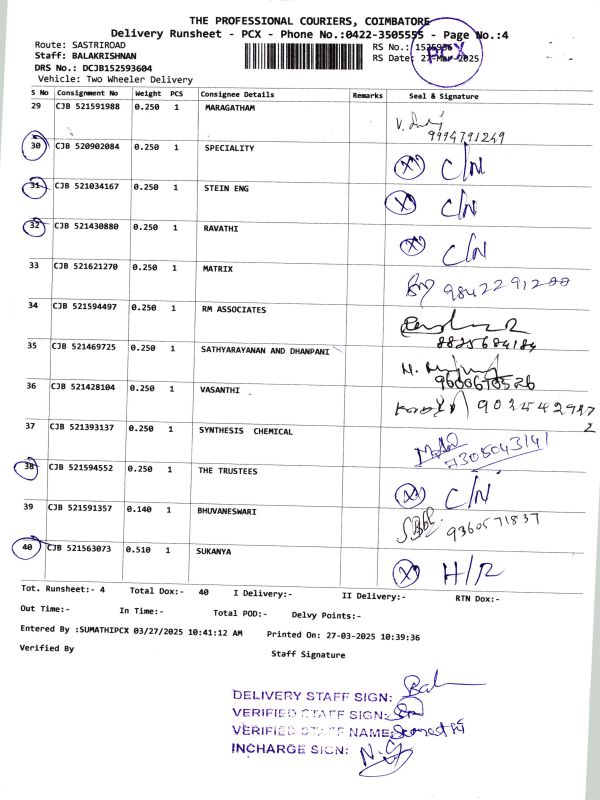 THE PROFESSIONAL COURIERS, COIMBATORE
Delivery Runsheet - PCX - Phone No.:0422-3505555 - Page No.:4
Route: SASTRIROAD
RS No.: 1525936
Staff: BALAKRISHNAN
RS Date: 27-Mar-2025
PCX
DRS No.: DCJB152593604
Vehicle: Two Wheeler Delivery
S No Consignment No Weight PCS Consignee Details Remarks Seal & Signature
29 CJB 521591988 0.250 1 MARAGATHAM
9994791249
30 CJB 520902084 0.250 1 SPECIALITY X C/N
31 CJB 521034167 0.250 1 STEIN ENG X C/N
32 CJB 521430880 0.250 1 RAVATHI X C/N
33 CJB 521621270 0.250 1 MATRIX 9842291200
34 CJB 521594497 0.250 1 RM ASSOCIATES
8825684184
35 CJB 521469725 0.250 1 SATHYARAYANAN AND DHANPANI
9600670526
36 CJB 521428104 0.250 1 VASANTHI
37 CJB 521393137 0.250 1 SYNTHESIS CHEMICAL
7305043141
38 CJB 521594552 0.250 1 THE TRUSTEES X C/N
39 CJB 521591357 0.140 1 BHUVANESWARI 9360571837
40 CJB 521563073 0.510 1 SUKANYA X H/R
Tot. Runsheet:- 4 Total Dox:- 40 I Delivery:- II Delivery:- RTN Dox:-
Out Time:- In Time:- Total POD:- Delvy Points:-
Entered By :SUMATHIPCX 03/27/2025 10:41:12 AM Printed On: 27-03-2025 10:39:36
Verified By Staff Signature
DELIVERY STAFF SIGN:
VERIFIED STAFF SIGN:
VERIFIED STAFF NAME:
INCHARGE SIGN: